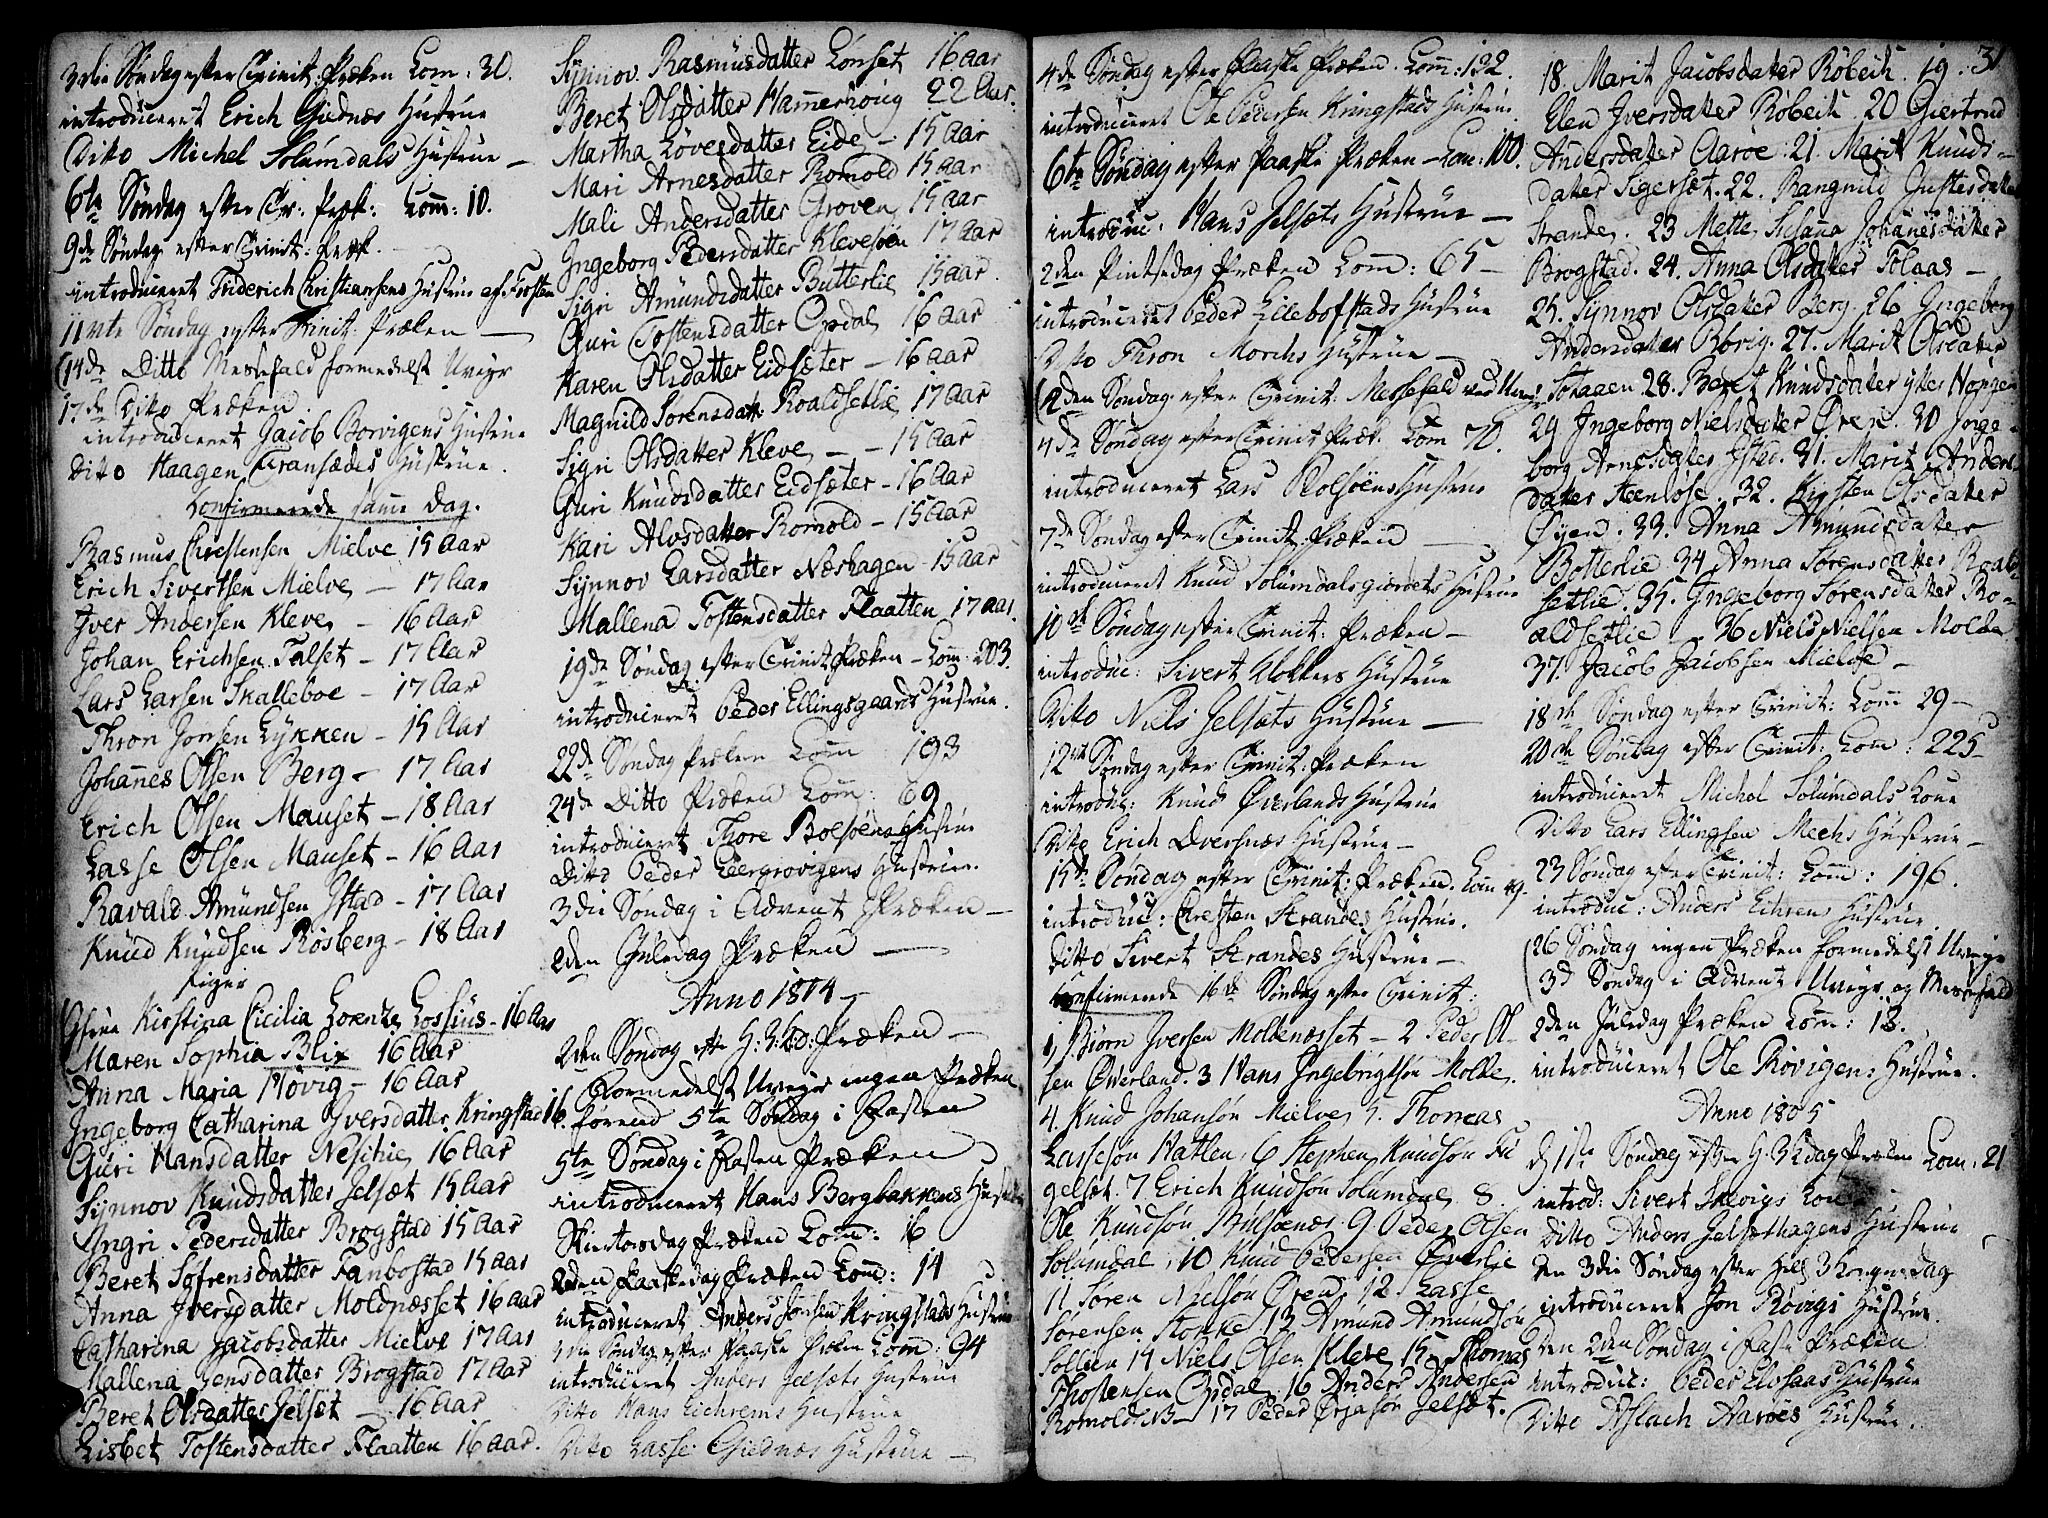 3die Søndag efter Trinit: Præken Com: 30.
introduceret Erich Giednæs Hustrue
Ditto Michel Solumdals Hustrue —
6te Søndag efter Tr: Præk: Com: 10.
9de Søndag efter Trinit: Præk.
introduceret Friderich Christiansens Hustrue af Frosten
11vte Søndag efter Trinit: Præken —
(14de Ditto Messefald formedelst Uveyr
17de Ditto Præken.
introduceret Jacob Borvigens Hustrue
Ditto Haagen Transædes Hustrue.
Confirmerede samme Dag.
Rasmus Christensen Mielve 15 Aar
Erich Sivertsen Mielve — 17 Aar
Iver Andersen Kleve — 16 Aar
Johan Erichsen Talset — 17 Aar
Lars Larsen Skalleboe — 17 Aar
Thron Jonsen Lykken — 15 Aar
Johannes Olsen Berg — 17 Aar
Erich Olsen Mauset — 18 Aar
Lasse Olsen Mauset — 16 Aar
Ravald Amundsen Istad — 17 Aar
Knud Knudsen Røsberg — 18 Aar
Piger
Kirstina Cicilia Lorentze Lossius — 16 Aar
Maren Sophia Blix 16 Aar
Anna Maria Røvig — 16 Aar
Ingeborg Catharina Iversdatter Kringstad 16.
Guri Hansdatter Nesthie 16 Aar
Synnov Knudsdatter Jelsæt 15 Aar
Yngri Pedersdatter Brogstad 15 Aar
Beret Søfrensdatter Fanbostad 15 Aar
Anna Iversdatter Moldnæsset 16 Aar
Catharina Jacobsdatter Mielve 17 Aar
Mallena Jensdatter Brogstad 17 Aar
Beret Olsdatter Jelsæt — 16 Aar
Lisbet Tostensdatter Flaatten 16 Aar.
Synnov Rasmusdatter Lønset 16 Aar
Beret Olsdatter Hammerhoug 22 Aar.
Martha Lovesdatter Eide — 15 Aar
Mari Arnesdatter Romold 15 Aar
Mali Andersdatter Groven 15 Aar
Ingeborg Pedersdatter Klevesøen 17 Aar
Sigri Amundsdatter Butterlie 15 Aar.
Guri Tostensdatter Opdal 16 Aar
Karen Olsdatter Eidsæter — 16 Aar
Magnild Sørensdatt: Roaldsetlie 17 Aar
Sigri Olsdatter Kleve — — 15 Aar
Guri Knudsdatter Eidsæter — 16 Aar
Kari Alvsdatter Romold — 15 Aar
Synnov Larsdatter Næshagen — 15 Aar
Mallena Tostensdatter Flaatten 17 Aar.
19de Søndag efter Trinit Præken — Com: 203.
introduceret Peder Ellingsgaards Hustrue.
22de Søndag Præken Com 193
24de Ditto Præken Com: 69
introduceret Thore Bolsøens Hustrue
Ditto Peder Leergrovigens Hustrue.
3die Søndag i Advent Præken —
2den Juledag Præken —
Anno 1804
2den Søndag efter H: 3: K: D: Præken —
Formedelst Uveyr ingen Præken
førend 5te Søndag i Fasten
5te Søndag i Fasten Præken
introduceret Hans Bergbakkens Hustrue
Skiertorsdag Præken Com: 16
2den Paaskedag Præken Com: 14
introduceret Anders Jonsen Kringstads Hustrue
Søndag efter Paaske Præken Com: 94
introduceret Anders Jelsæts Hustrue
Ditto Hans Eichrems Hustrue
Ditto Lasse Giednæs Hustrue —
4de Søndag efter Paaske Præken. Com: 132.
introduceret Ole Pedersen Kringstads Hustrue.
6te Søndag efter Paaske Præken — Com: 100.
introduc: Hans Jelsæts Hustrue —
2den Pintsedag Præken Com: 65 —
introduceret Peder Lillebostads Hustrue
Ditto Thron Morchs Hustrue —
(2den Søndag efter Trinit: Messefald ved Uveyr
4de Søndag efter Trinit Præk. Com 70.
introduceret Lars Bolsøens Hustrue
7de Søndag efter Trinit: Præken —
introduceret Knud Solumdalsgiærdets Hustrue
10de Søndag efter Trinit: Præken —
introduc: Sivert Klokkers Hustrue
Ditto Niels Jelsæts Hustrue —
12te Søndag efter Trinit: Præken
introduc: Knud Øverlands Hustrue
Ditto Erich Dversnæs Hustrue —
15te Søndag efter Trinit: Præken. Com 49.
introduc: Christen Strandes Hustrue.
Ditto Sivert Strandes Hustrue —
Confirmerede 16de Søndag efter Trinit:
1, Biørn Iversen Moldenæsset — 2 Peder Ol-
sen Øverland. 3 Hans Ingebrigtsøn Molde.
4. Knud Johansøn Mielve 5. Thomas
Lassesøn Hatlen, 6 Stephen Knudsøn Fu
gelset. 7 Erich Knudsøn Solumdal, 8.
Ole Knudsøn Bulsøenæs. 9 Peder Olsen
Solumdal, 10 Knud Pedersen
11 Søren Nielsøn Øren 12. Lasse
Sørensen Stokke 13 Amund Amundsøn
Sollien 14 Niels Olsen Kleve 15. Thomas
Thostensen Opdal. 16 Anders Andersen
Romold NB — 17 Peder Ørjasøn Jelsæt.
31
18 Marit Jacobsdatter Røbech. 19.
Elen Iversdatter Røbech. 20 Giertrud
Andersdatter Aaroe. 21. Marit Knuds-
datter Sigerset. 22. Rangnild Justesdatter
Strande. 23 Mette Susana Johannesdatter
Brogstad. 24. Anna Olsdatter Tolaas —
25. Synnov Olsdatter Berg. 26 Ingeborg
Andersdatter Rovig. 27. Marit Olsdatter
28. Beret Knudsdatter
29 Ingeborg Nielsdatter Øren. 30 Inge-
borg Arnesdatter Istad. 31. Marit Anders-
datter Steenløse. 32. Kirsten Olsdatter
Øyen. 33. Anna Amundsdatter
Botterlie 34 Anna Sørensdatter Roald-
setlie. 35. Ingeborg Sørensdatter Ro-
aldsetlie. 36 Niels Nielsen Molde
37. Jacob Jacobsen Mielve —
18de Søndag efter Trinit: Com 29 —
20de Søndag efter Trinit: Com: 225
introduceret Michel Solumdals Kone
Ditto Lars Ellingsen Mechs Hustrue —
23 Søndag efter Trinit: Com: 196.
introduc: Anders Eichrems Hustrue
(26 Søndag ingen Præken formedelst Uveyr
3d Søndag i Advent Uveyr og Messefald
2den Juledag Præken Com: 18.
introduceret Ole Røvigens Hustrue.
Anno 1805
d 1ste Søndag efter H. 3 K dag Præken Com. 21
introd: Sivert Kone
Ditto Anders Jelsæthagens Hustrue
Den 3die Søndag efter Hell 3 Kongersdag
introduceret Jon Røvigs Hustrue.
Den 2den Søndag i Faste Præken
introduc: Peder Elvsaas Hustrue
Ditto Aslach Aaroes Hustrue.